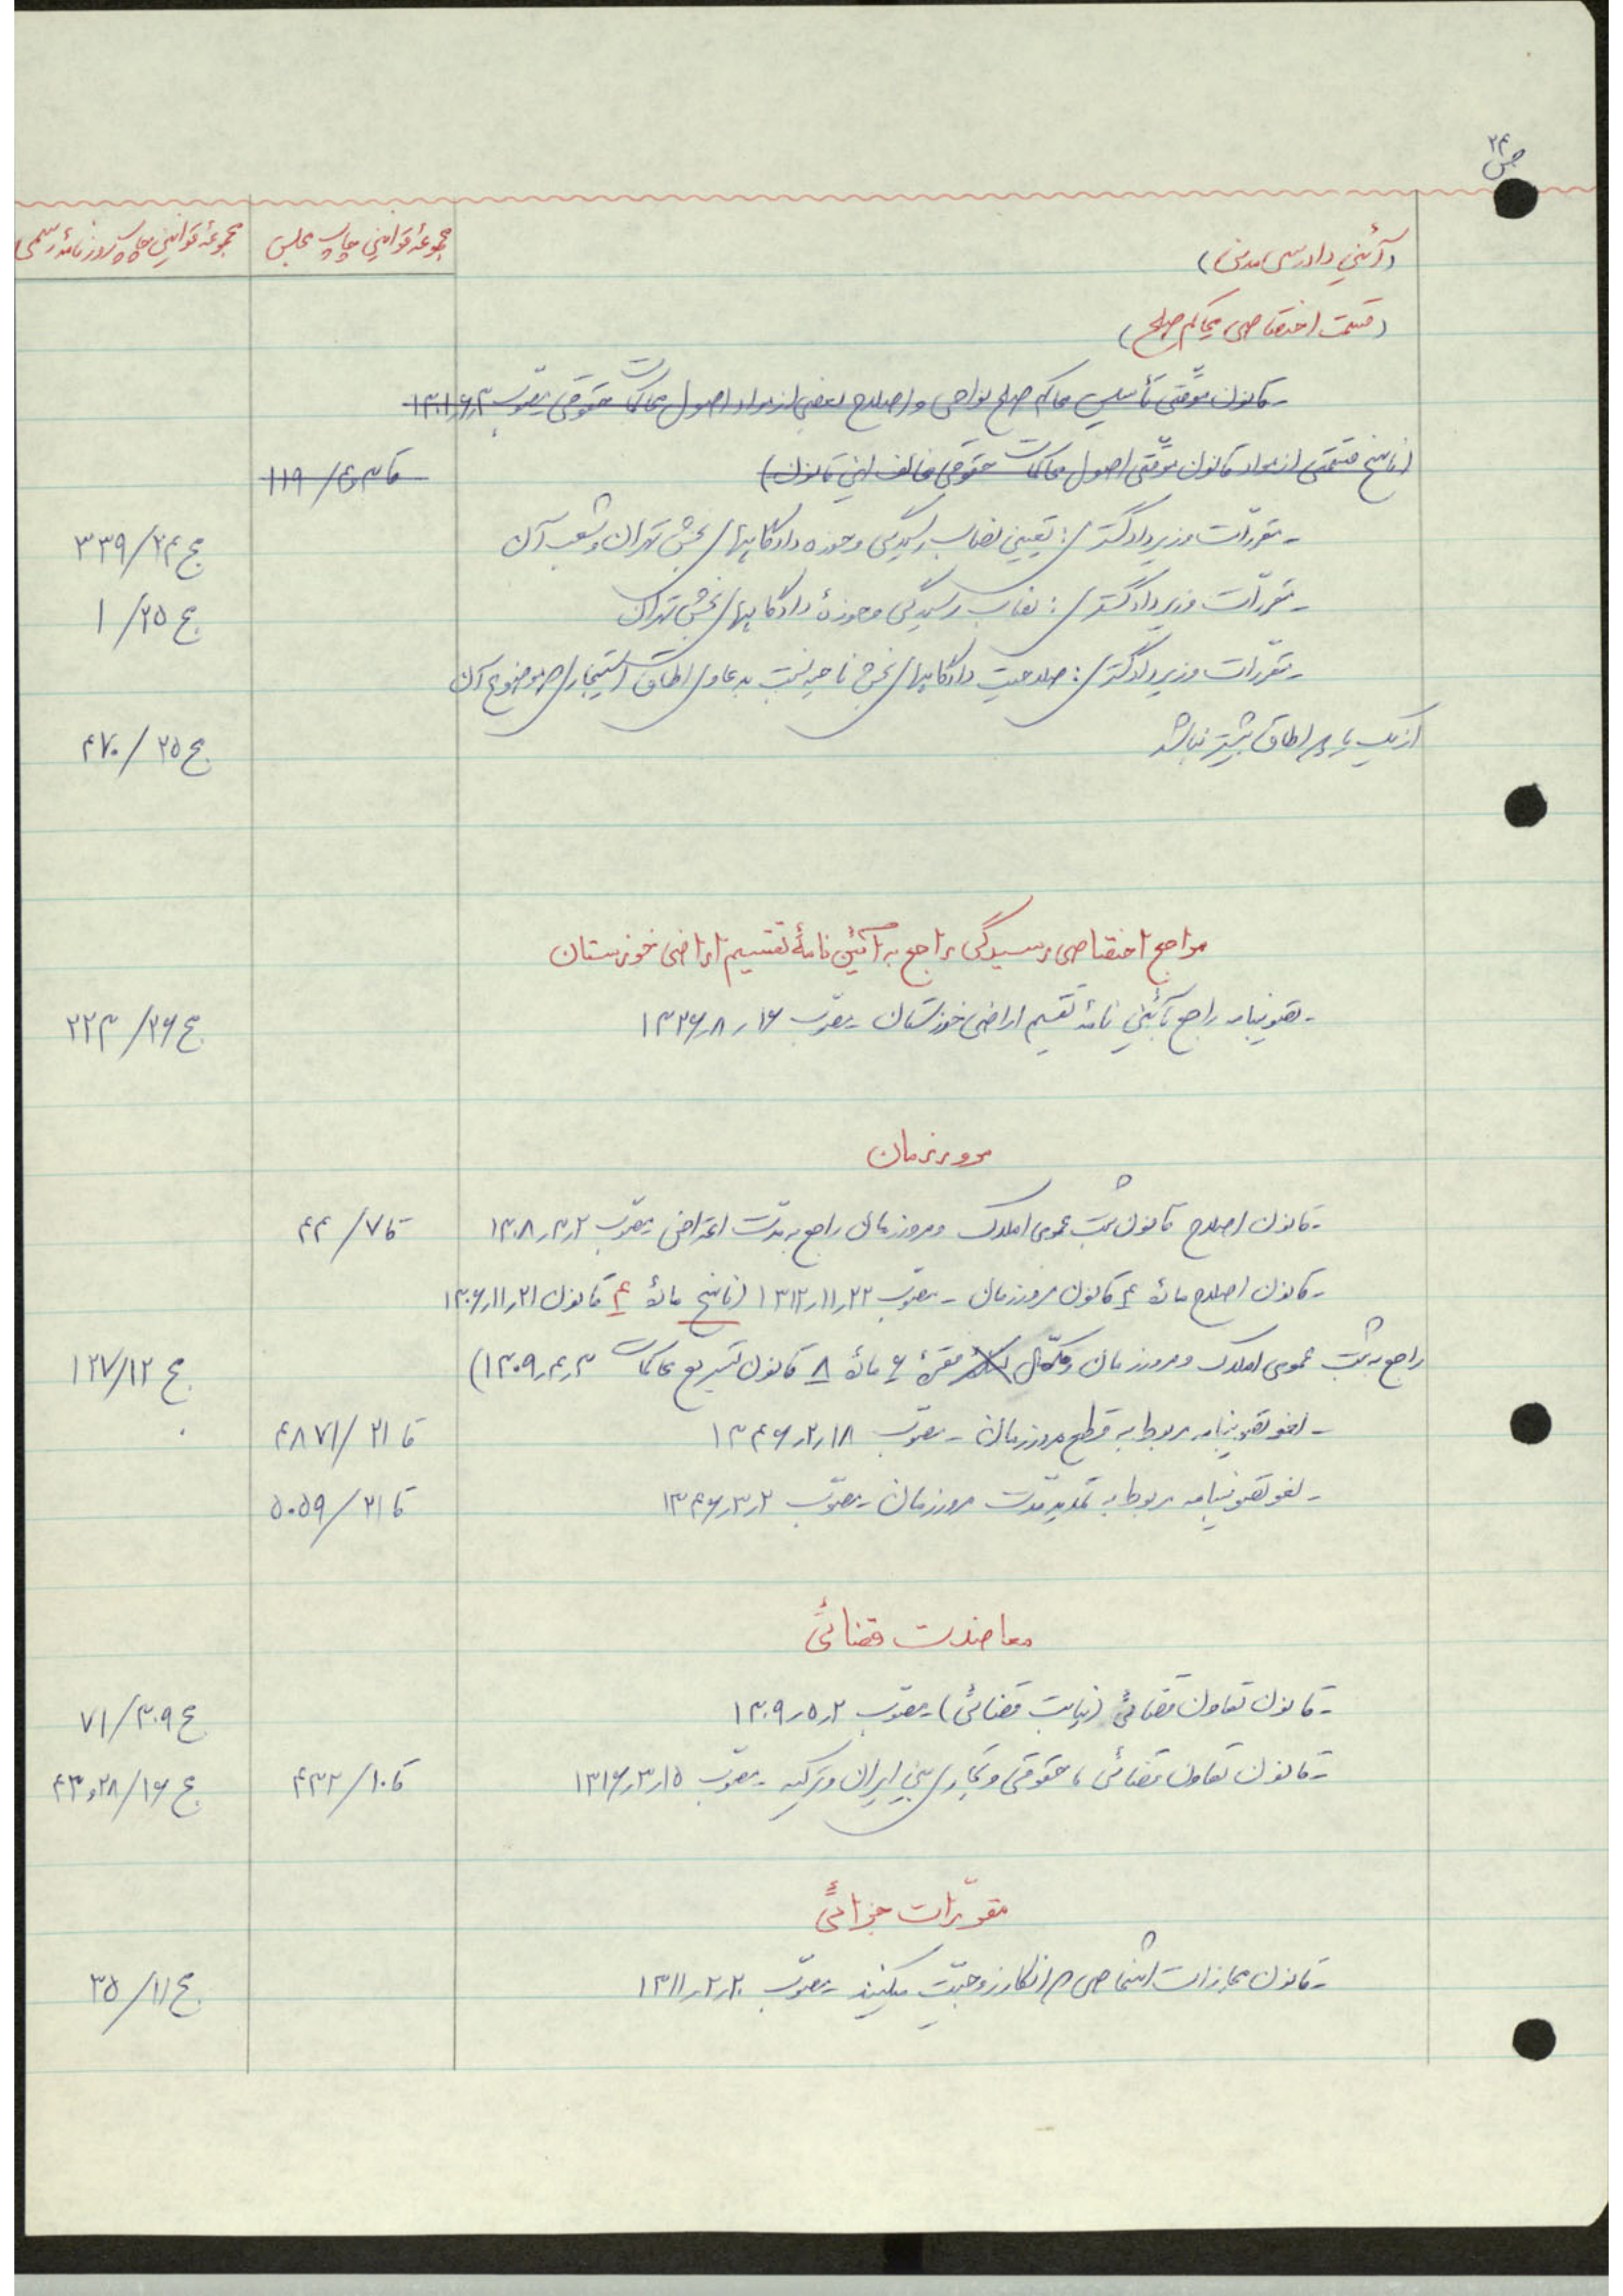 ص ۲۴
(آئین دادرسی مدنی)
مجموعهٔ قوانین چاپ مجلس
مجموعهٔ قوانین چاپ روزنامهٔ رسمی
(قسمت اختصاصی محاکم صلح)
- قانون موقتی تأسیس محاکم صلح نواحی و اصلاح بعضی از مواد اصول محاکمات حقوقی مصوّب
(ناسخ قسمتی از مواد قانون موقّتی اصول محاکمات حقوقی مخالف این قانون) ۱۱۹/
- مقرّرات وزیر دادگستری: تعیین نصاب رسیدگی و حوزه دادگاههای بخش تهران و شعب آن ج ۲۴/ ۳۳۹
- مقرّرات وزیر دادگستری: نصاب رسیدگی و حوزهٔ دادگاههای بخش تهران ج ۲۵/ ۱
- مقرّرات وزیر دادگستری: صلاحیت دادگاههای بخش ناحیه نسبت بدعاوی اطاق استیجاری که موضوع آن
از یک یا دو اطاق بیشتر نباشد ج ۲۵/ ۴۷۰
مراجع اختصاصی رسیدگی راجع به آئین نامهٔ تقسیم اراضی خوزستان
- تصویبنامه راجع بآئین نامهٔ تقسیم اراضی خوزستان - مصوّب ۱۶ر۸ر۱۳۲۶ ج ۲۶/ ۲۲۳
مرور زمان
- قانون اصلاح قانون ثبت عمومی املاک و مرور زمان راجع به مدّت اعتراض مصوّب ۲ر۳ر۱۳۰۸ قا ۷/ ۴۴
- قانون اصلاح مادهٔ ۴ قانون مرور زمان - مصوّب ۲۲ر۱۱ر۱۳۱۲ (ناسخ مادهٔ ۴ قانون ۲۱ر۱۱ر۱۳۰۶
راجع به ثبت عمومی املاک و مرور زمان و مکمّل فقرهٔ ۶ مادهٔ ۸ قانون تسریع محاکمات ۳ر۴ر۱۳۰۹) ج ۱۲/ ۱۲۷
- لغو تصویبنامه مربوط به قطع مرور زمان - مصوّب ۱۸ر۲ر۱۳۴۶ قا ۲۱/ ۴۸۷۱
- لغو تصویبنامه مربوط به تمدید مدّت مرور زمان - مصوّب ۲ر۳ر۱۳۴۶ قا ۲۱/ ۵۰۵۹
معاضدت قضائی
- قانون تعاون قضائی (نیابت قضائی) - مصوّب ۲ر۵ر۱۳۰۹ ج ۳۰۹/ ۷۱
- قانون تعاون قضائی، حقوقی و تجاری بین ایران و ترکیه - مصوّب ۱۵ر۳ر۱۳۱۶ قا ۱۰/ ۴۳۲ ج ۱۶/ ۲۸و۴۳
مقرّرات جزائی
- قانون مجازات اشخاصی که انکار زوجیّت میکنند - مصوّب ۲۰ر۲ر۱۳۱۱ ج ۱۱/ ۳۵